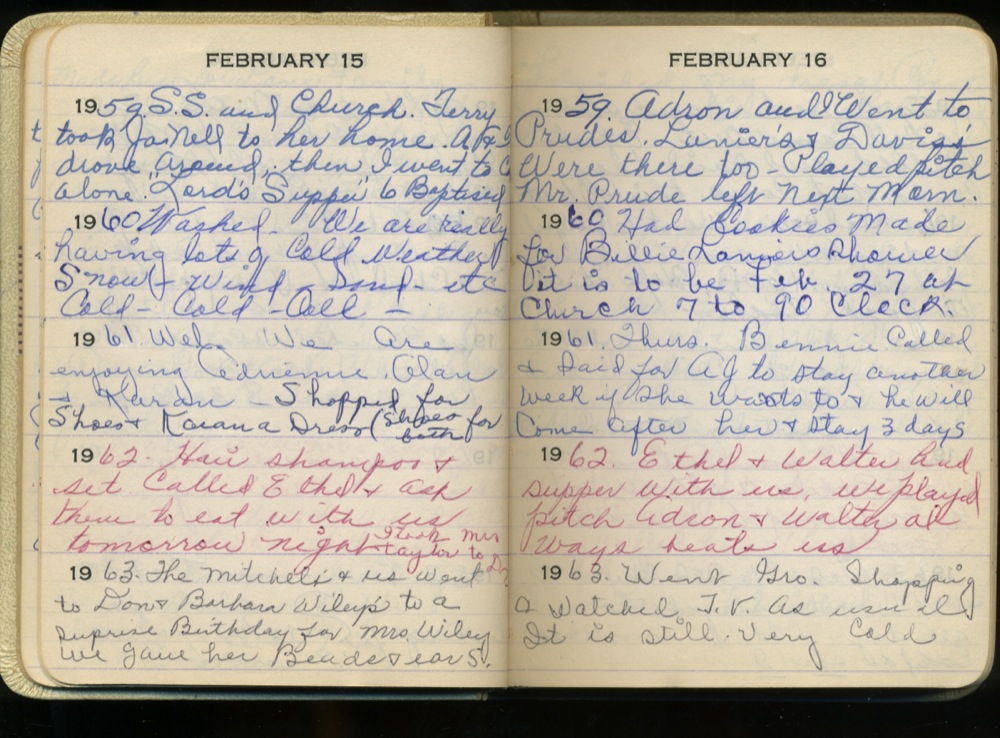 FEBRUARY 15
1959. S.S. and Church. Terry
took JoNell to her home. A &
drove around, then I went to
alone. "Lord's Supper" 6 Baptised
1960 Washed - We are really
having lots of Cold Weather
Snow + Wind - Sand - etc
Cold - Cold - Coll -
1961. Wed. We are
enjoying Adrienne, Alan
+ Karan - Shopped for
Shoes + Karan a Dress (Shoes for
both
1962. Hair shampoo +
set. Called Ethel + ask
them to eat with us
tomorrow night I took Mrs
Taylor to Dr
1963. The Mitchels + us went
to Don + Barbara Wiley's to a
suprise Birthday for Mrs. Wiley
We gave her Beads + ear S.
FEBRUARY 16
1959. Adron and I Went to
Prudes. Lanier's + Davis's
Were there too - Played pitch
Mr. Prude left Next Morn.
1960 Had Cookies Made
for Billie Laniers Shower
it is to be Feb. 27 at
Church 7 to 9 O Clock.
1961. Thurs. Bennie Called
+ Said for AJ to stay another
week if she wants to + he will
Come after her + stay 3 days
1962. Ethel + Walter had
supper with us, we played
pitch Adron + Walter al
ways beats us
1963. Went Gro. Shopping
+ Watched T.V. as usuell
It is still. Very Cold